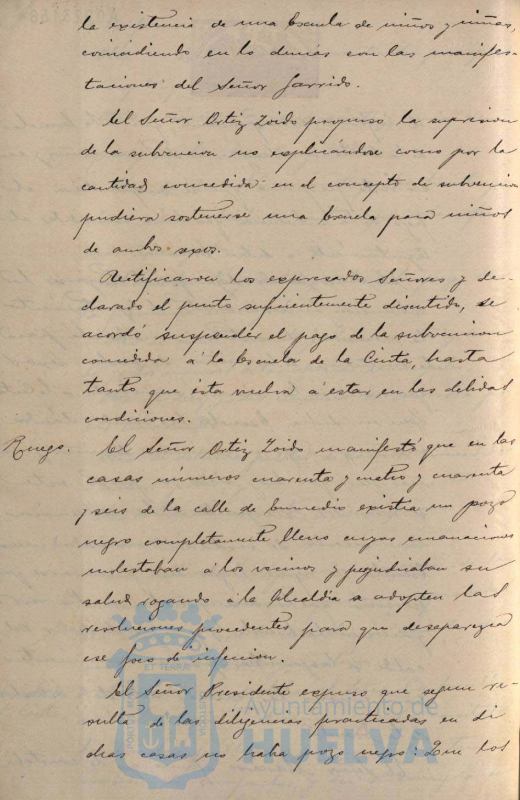 la existencia de una Escuela de niños y niñas,
coincidiendo en lo demás con las manifes-
taciones del Señor Garrido.
El Señor Ortiz Zoido propuso la supresion
de la subvencion no explicándose como por la
cantidad concedida en el concepto de subvencion
pudiera sostenerse una Escuela para niños
de ambos sexos.
Rectificaron los expresados Señores y de-
clarado el punto suficientemente discutido, se
acordó suspender el pago de la subvencion
concedida á la Escuela de la Cinta, hasta
tanto que ésta vuelva á estar en las debidas
condiciones.
Ruego. El Señor Ortiz Zoido manifestó que en las
casas números cuarenta y cuatro y cuarenta
y seis de la calle de Enmedio existia un pozo
negro completamente lleno cuyas emanaciones
molestaban á los vecinos y perjudicaban su
salud, rogando á la Alcaldia se adopten las
resoluciones procedentes para que desaparezca
ese foco de infeccion.
El Señor Presidente expuso que segun re-
sulta de las diligencias practicadas en di
chas casas no habia pozo negro: Que los
Ayuntamiento de
HUELVA